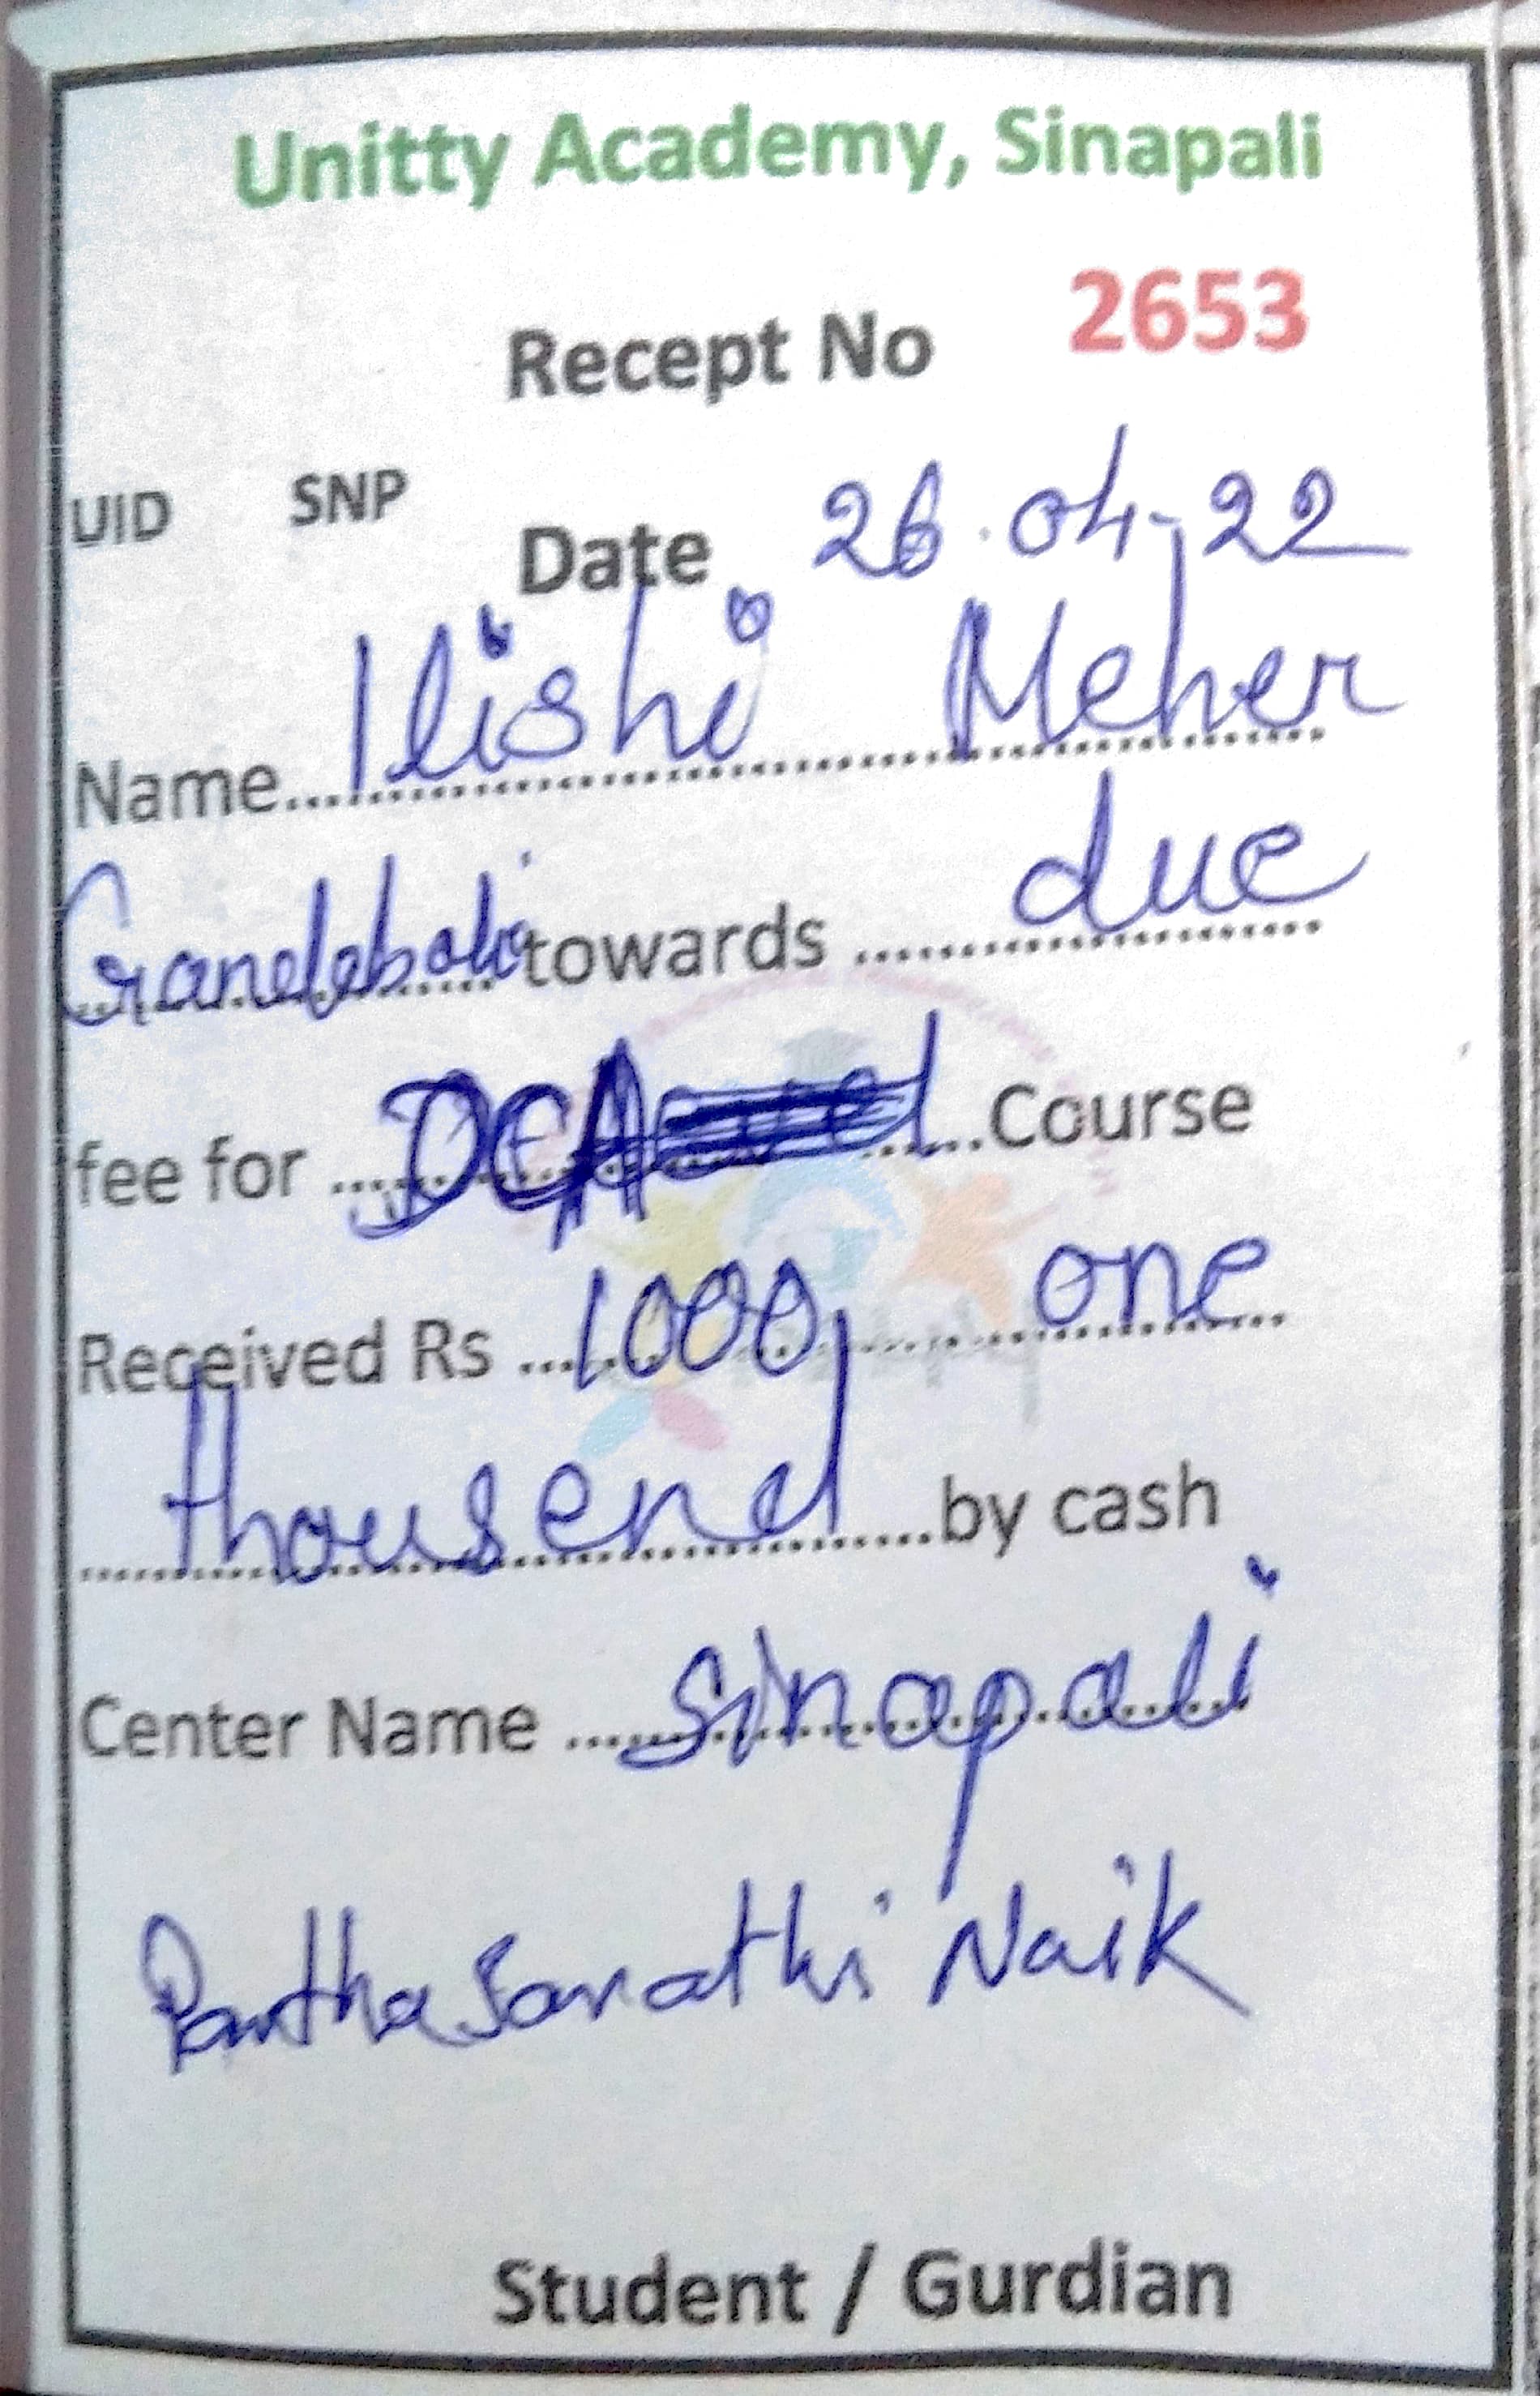 Unitty Academy, Sinapali
Recept No 2653
UID SNP
Date 26.04-22
Name Ilishi Meher
towards due
fee for DCA Course
Received Rs 1000, one
thousend by cash
Center Name Sinapali
Parthasarathi Naik
Student / Gurdian